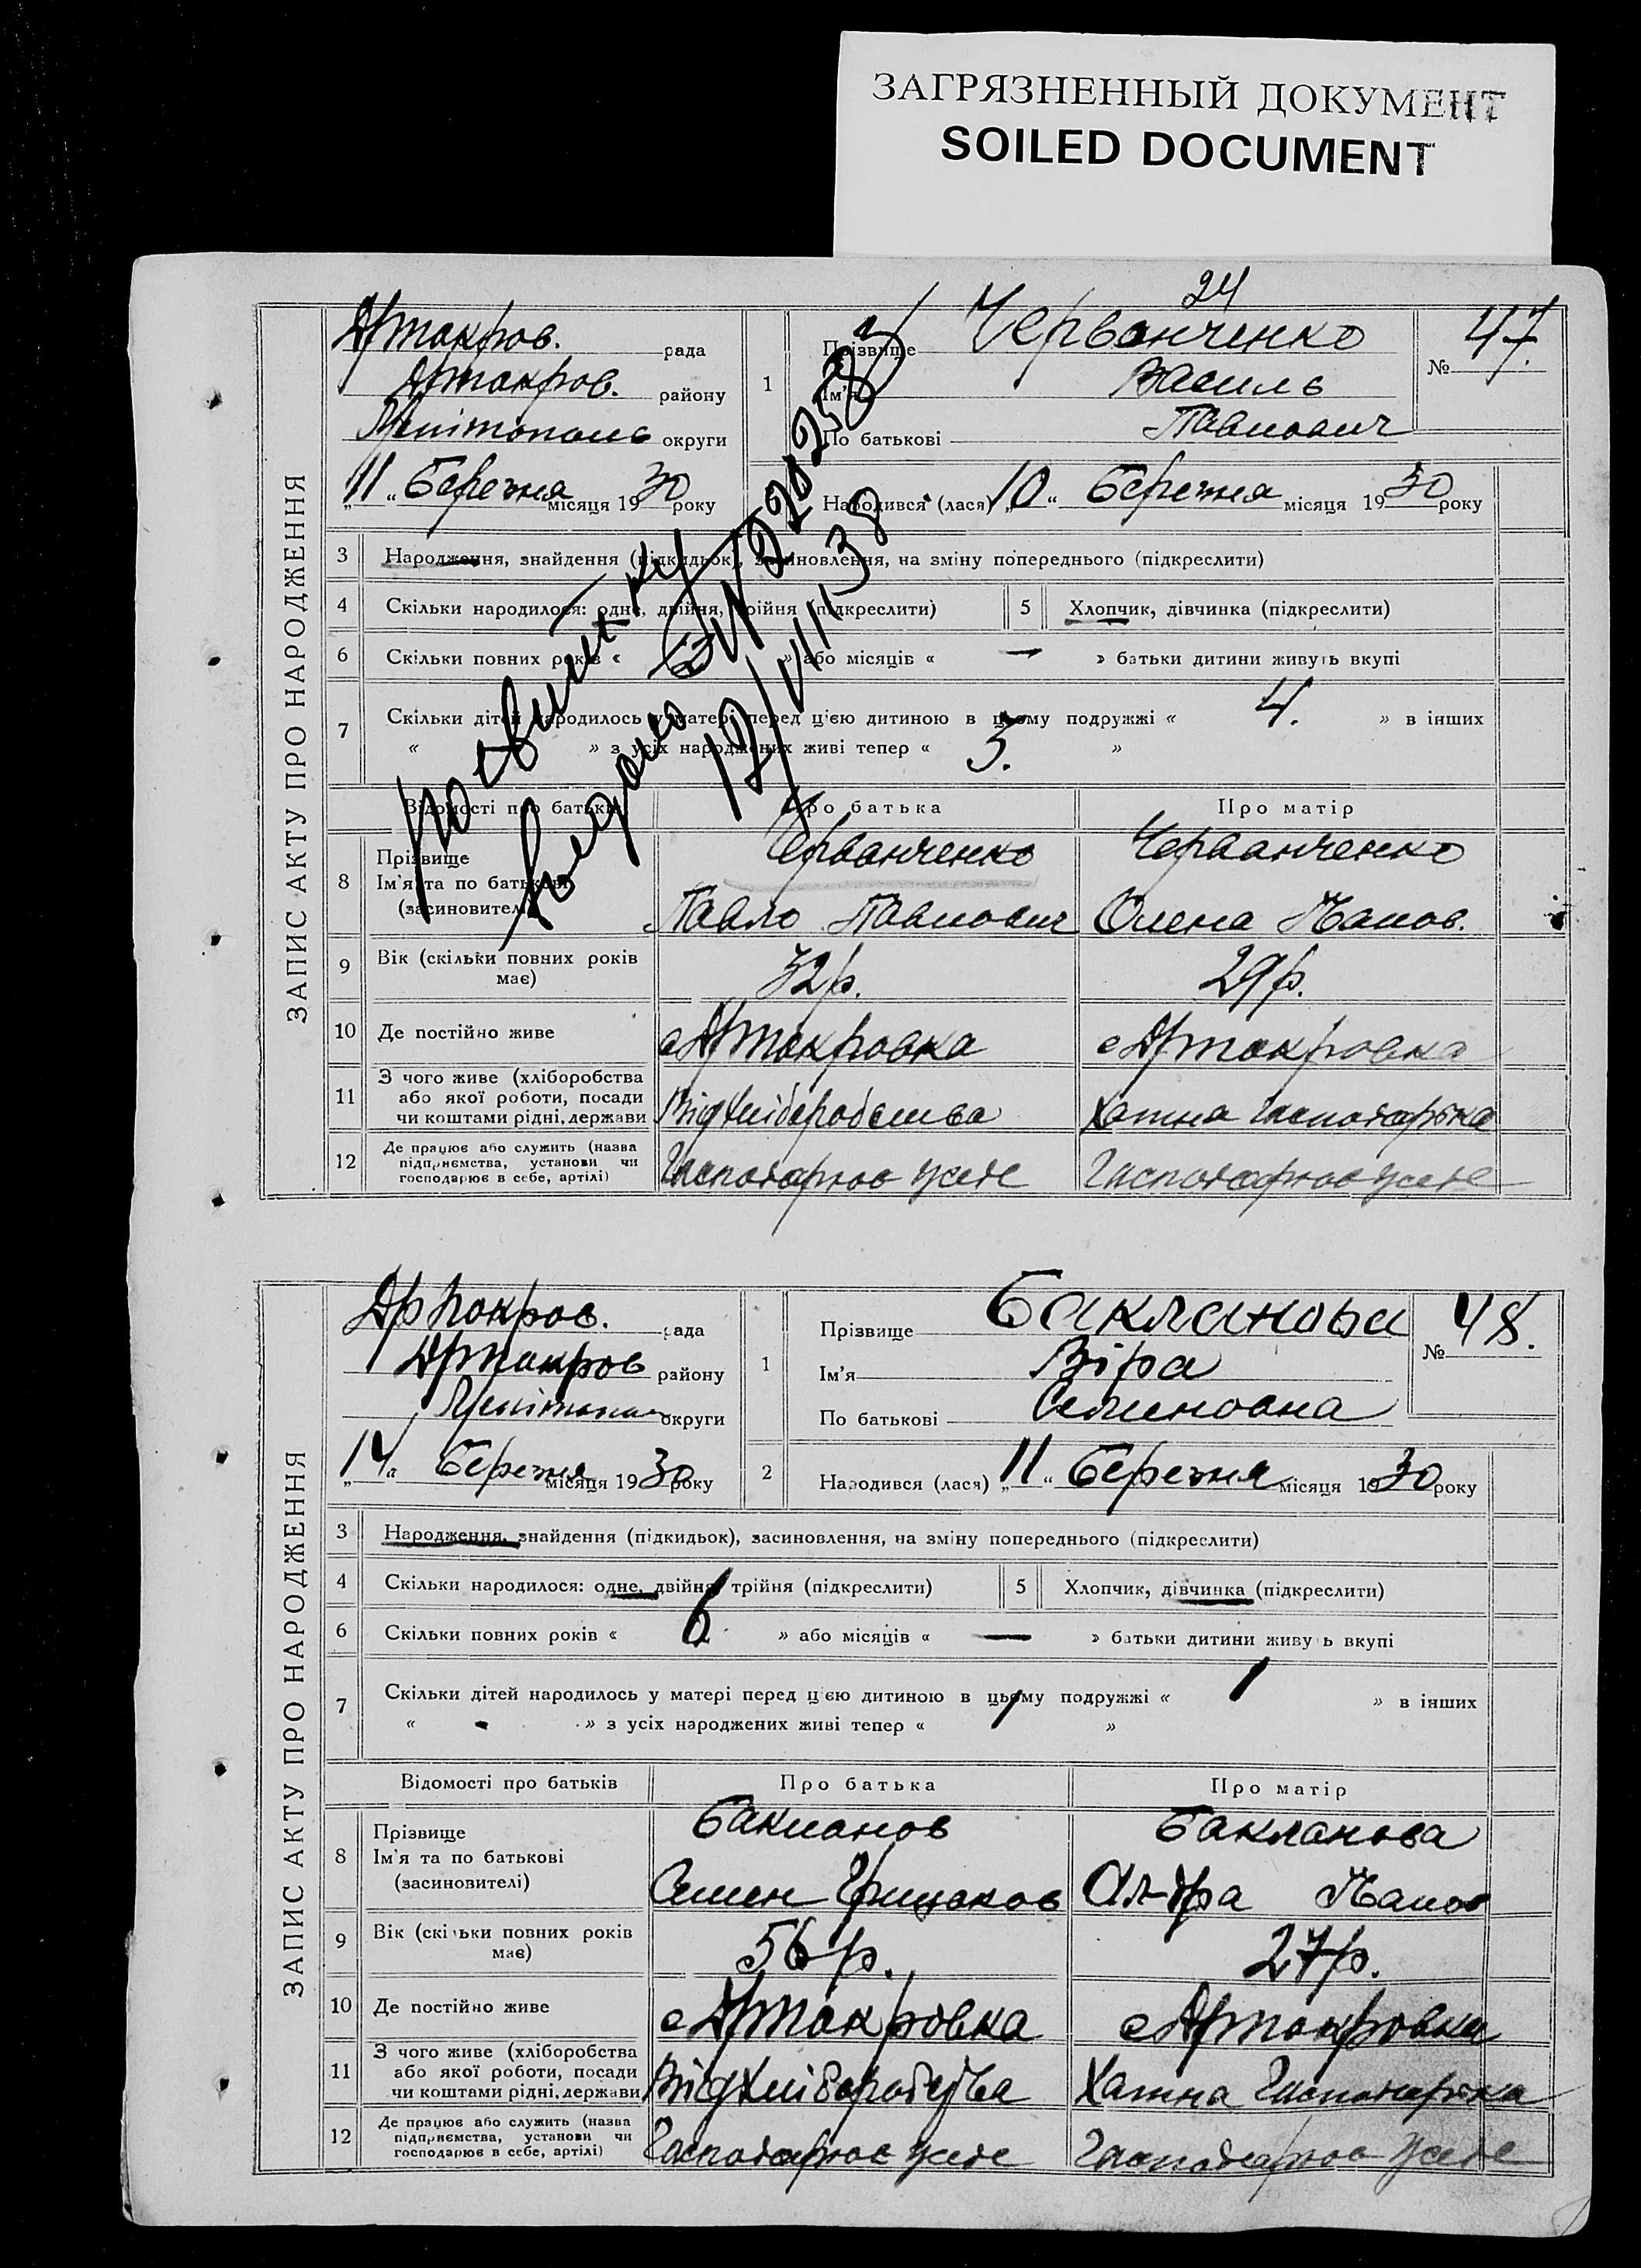 ЗАГРЯЗНЕННЫЙ ДОКУМЕНТ
SOILED DOCUMENT
24
ЗАПИС АКТУ ПРО НАРОДЖЕННЯ
рада
району
округи
„11“ Березня місяця 1930 року
1
Прізвище Черванченко
Ім'я Василь
По батькові Павлович
№ 47.
Народився (лася) „10“ Березня місяця 1930 року
3 Народження, знайдення (підкидьок), засиновлення, на зміну попереднього (підкреслити)
4 Скільки народилося: одне, двійня, трійня (підкреслити)
5 Хлопчик, дівчинка (підкреслити)
6 Скільки повних років « » або місяців « — » батьки дитини живуть вкупі
7 Скільки дітей народилось у матері перед цією дитиною в цьому подружжі « 4. » в інших
« » з усіх народжених живі тепер « 5. »
Відомості про батьків
Про батька
Про матір
8 Прізвище
Ім'я та по батькові
(засиновителі)
Черванченко
Павло Павлович
Черванченко
Олена Иванов.
9 Вік (скільки повних років
має)
32р.
29р.
10 Де постійно живе
11 З чого живе (хліборобства
або якої роботи, посади
чи коштами рідні, держави
Від Хліборобства
Хатна Господарька
12 Де працює або служить (назва
підприємства, установи чи
господарює в себе, артілі)
Господарює у себе
Господарює у себе
ЗАПИС АКТУ ПРО НАРОДЖЕННЯ
рада
району
округи
„14“ Березня місяця 1930 року
1
Прізвище Бакланова
Ім'я Віра
По батькові Семеновна
№ 48.
2 Народився (лася) „11“ Березня місяця 1930 року
3 Народження, знайдення (підкидьок), засиновлення, на зміну попереднього (підкреслити)
4 Скільки народилося: одне, двійня, трійня (підкреслити)
5 Хлопчик, дівчинка (підкреслити)
6 Скільки повних років « 6 » або місяців « — » батьки дитини живуть вкупі
7 Скільки дітей народилось у матері перед цією дитиною в цьому подружжі « 1 » в інших
« - » з усіх народжених живі тепер « 1 »
Відомості про батьків
Про батька
Про матір
8 Прізвище
Ім'я та по батькові
(засиновителі)
Бакланов
Семен
Бакланова
Ал-дра Иванов
9 Вік (скільки повних років
має)
56р.
27р.
10 Де постійно живе
11 З чого живе (хліборобства
або якої роботи, посади
чи коштами рідні, держави
Від Хліборобства
Хатна Господарька
12 Де працює або служить (назва
підприємства, установи чи
господарює в себе, артілі)
Господарює у себе
Господарює у себе